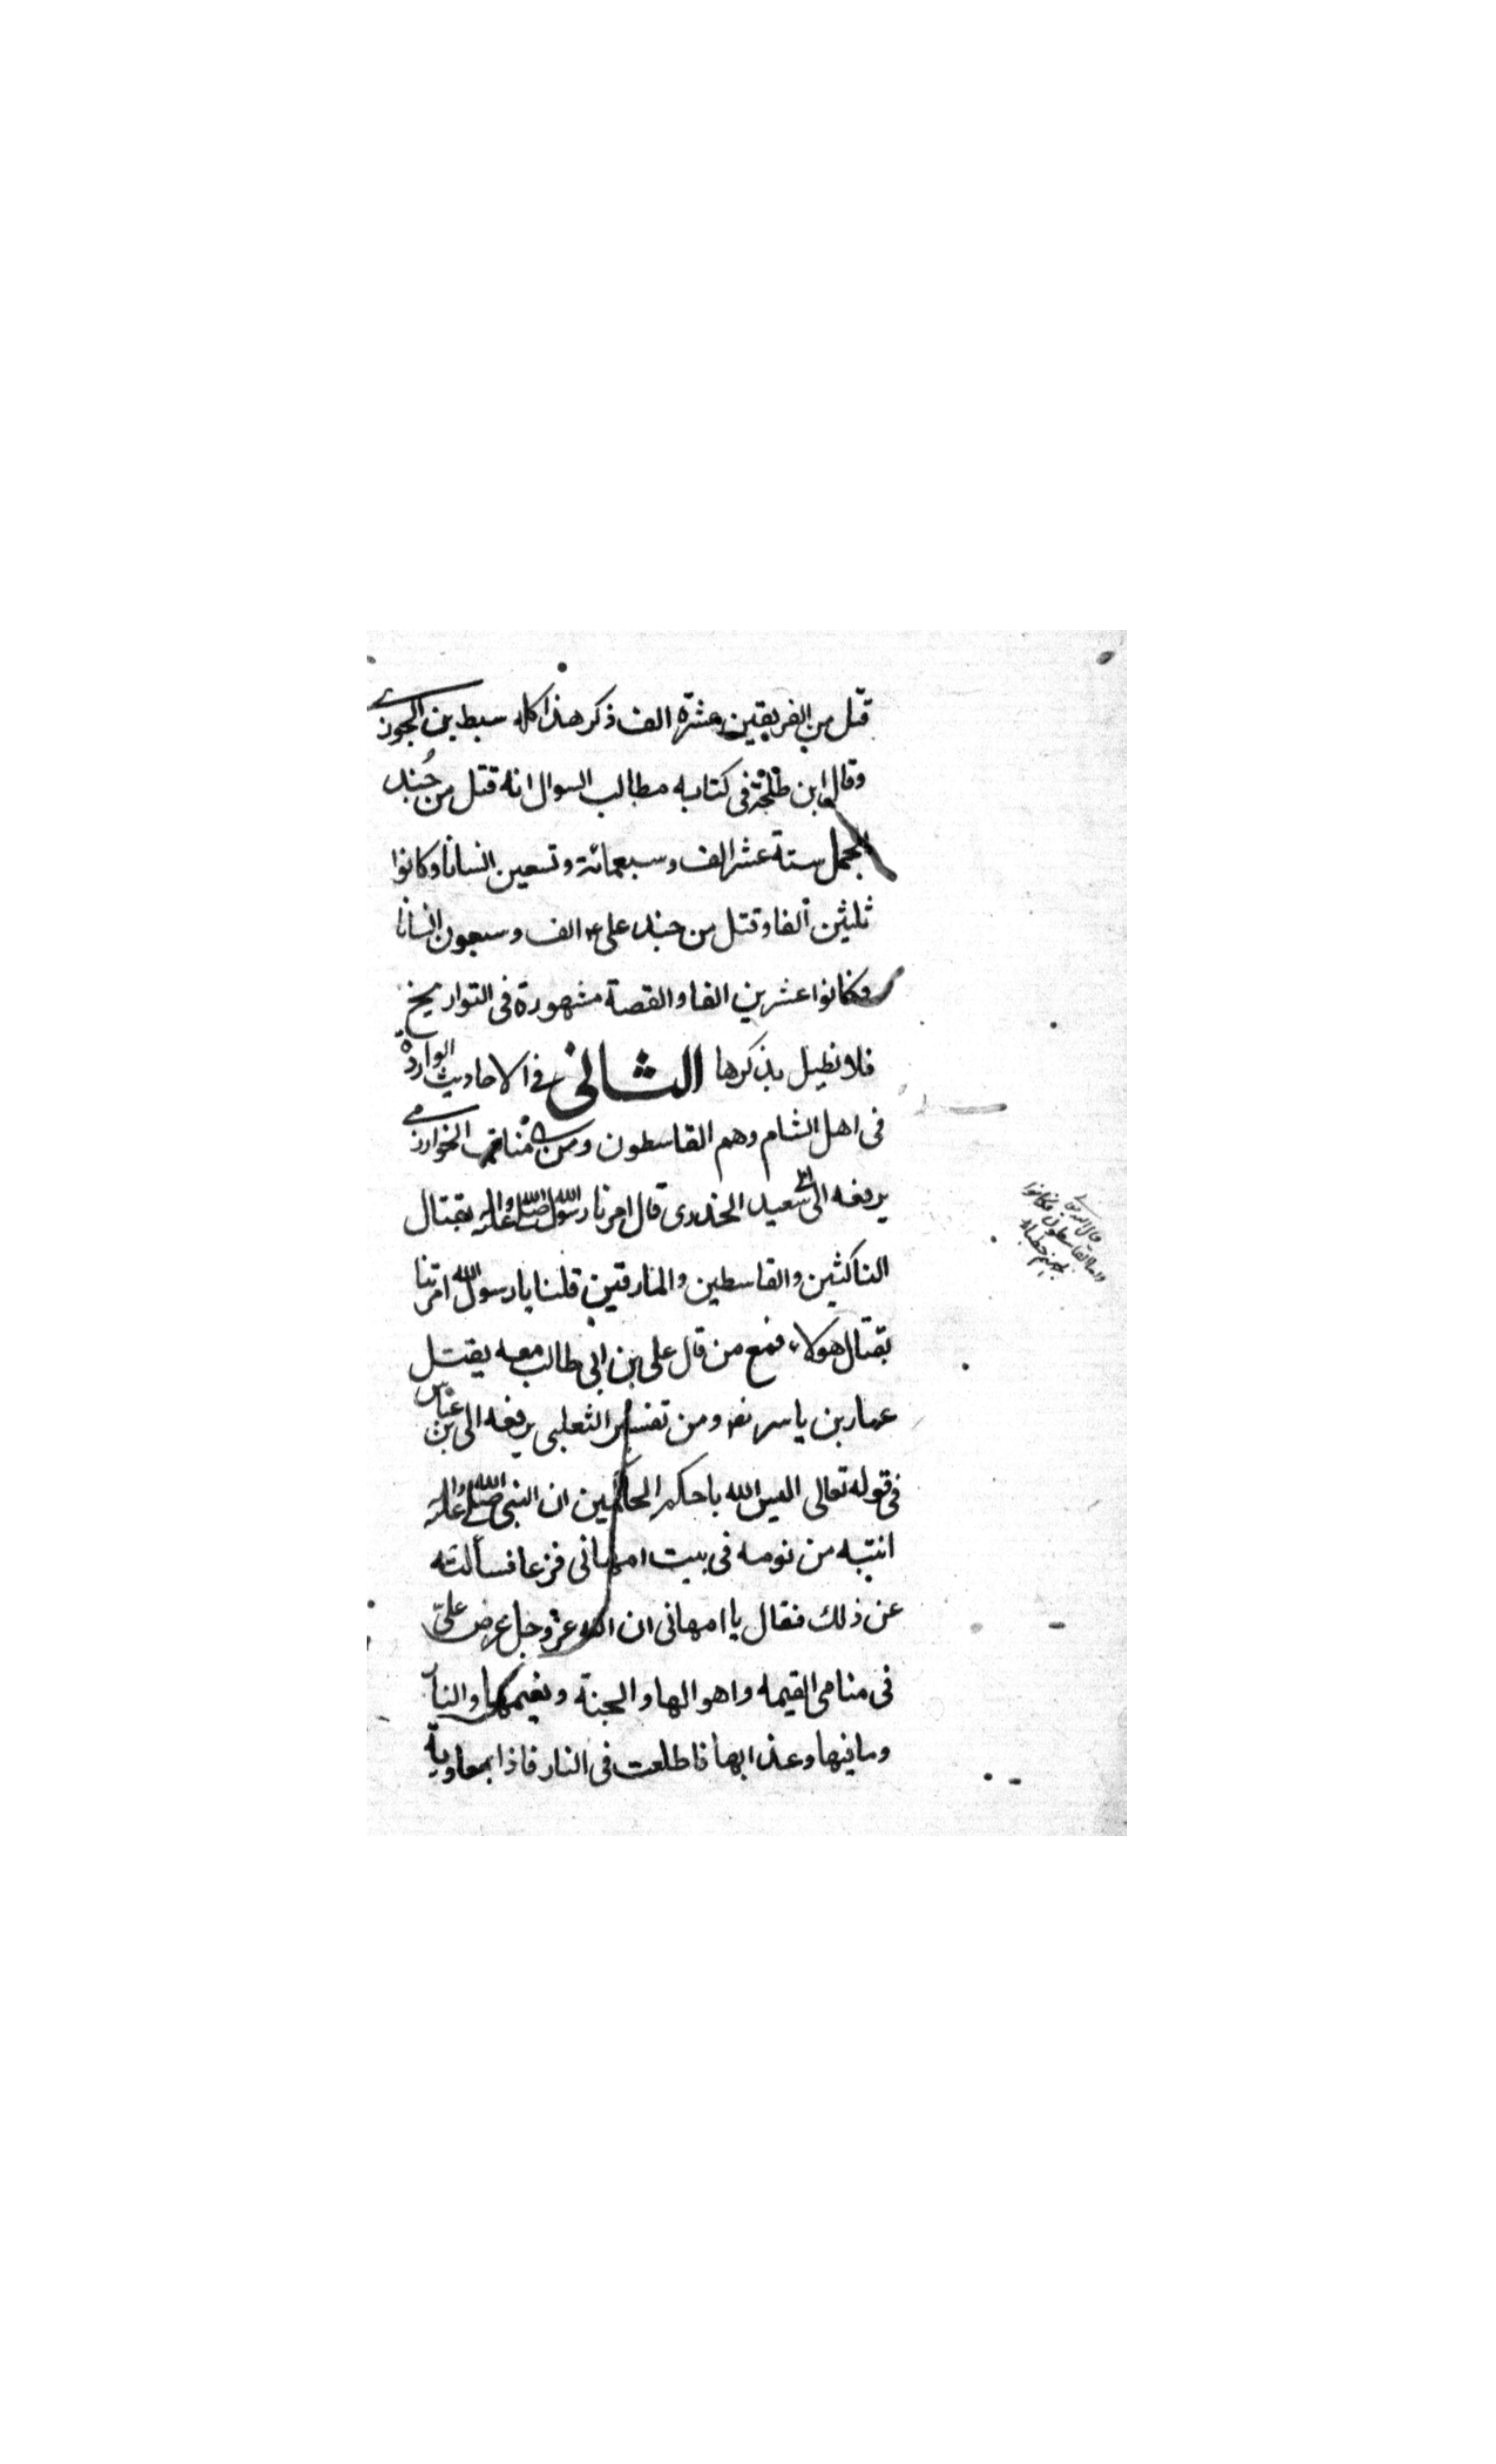 قتل من الفريقين عشرة الف ذكر هذا كله سبط بن الجوزى
وقال ابن طلحة فى كتابه مطالب السوال انه قتل من جُند
الجمل ستة عشر الف وسبعمائة وتسعين انسانا وكانوا
ثلثين ألفا وقتل من جند على ع الف وسبعون انسانا
وكانوا عشرين الفا والقصة مشهورة فى التواريخ
فلا نطيل بذكرها الثانى فى الاحاديث الواردة
فى اهل الشام وهم القاسطون ومن مناقب الخوارزمى
يرفعه الى ابى سعيد الخدرى قال امرنا رسول الله صلى الله عليه واله بقتال
الناكثين والقاسطين والمارقين قلنا يا رسول الله امرتنا
بقتال هولاء فمع من قال على بن ابى طالب معه يقتل
عمار بن ياسر ومن تفسير الثعلبى يرفعه الى بن عباس
فى قوله تعالى اليس الله باحكم الحاكمين ان النبى صلى الله عليه واله
انتبه من نومه فى بيت امهانى فزعا فسألته
عن ذلك فقال يا امهانى ان الله عز وجل عرض علىّ
فى منامى القيمه واهوالها والجنة ونعيمها والنار
وما فيها وعذابها فاطلعت فى النار فاذا بمعاوية
قال الله تعالى
واما القاسطون فكانوا
لجهنم حطبا